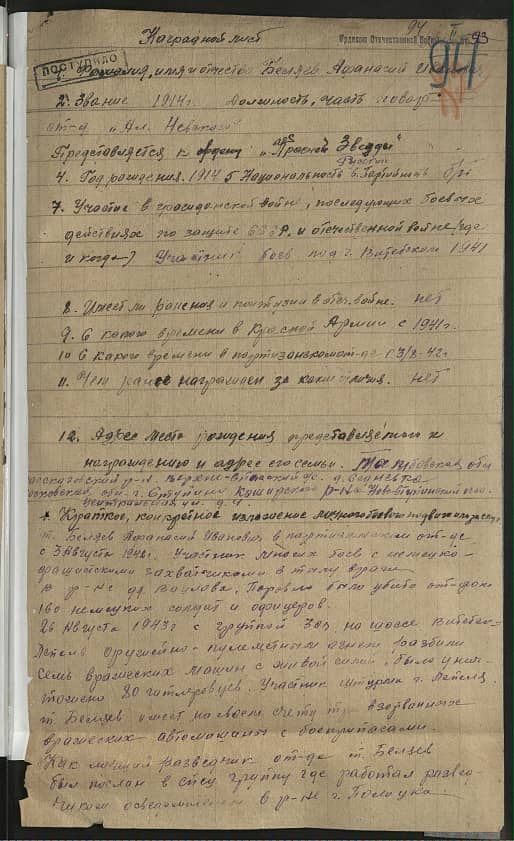 94
Наградной лист
Орденом Отечественной Войны II ст. 93
ПОСТУПИЛО
941
1. Фамилия, имя и отчество Беляев Афанасий Иванович
2. Звание 1914г. должность, часть повар
от-д "Ал. Невского"
Представляется к ордену "Красной Звезды"
Русский
4. Год рождения. 1914 5 Национальность 6. Партийность б/п
7. Участие в гражданской войне, последующих боевых
действиях по защите СССР, и отечественной войне (где
и когда) Участник боев под г. Витебском 1941
8. Имеет ли ранения и контузии в отеч. войне. нет
9. С какого времени в Красной Армии с 1941г.
10 С какого времени в партизанском от-де с 3/8-42г.
11. Чем ранее награжден за какие отличия. нет
12. Адрес место рождения представляемого к
награждению и адрес его семьи. Тамбовская обл
р-н. д.
обл. г. Ступино Каширского р-на
* Краткое, конкретное изложение личного боевого подвига или заслуг
т. Беляев Афанасий Иванович в партизанском от-де
с 3 Августа 1942г. Участник многих боев с немецко-
фашистскими захватчиками в тылу врага
В р-не дд. было убито
160 немецких солдат и офицеров.
26 Августа 1943г с группой на шоссе Витебск-
Лепель оружейно-пулеметным огнем разбили
семь вражеских машин с живой силой, было унич-
тожено 80 гитлеровцев. Участник штурма г. Лепеля.
т. Беляев имеет на своем счету три взорванных
вражеских автомашины с боеприпасами.
Как лучший разведчик от-да т. Беляев
был послан в спец группу где работал развед-
чиком в р-не г. Полоцка.